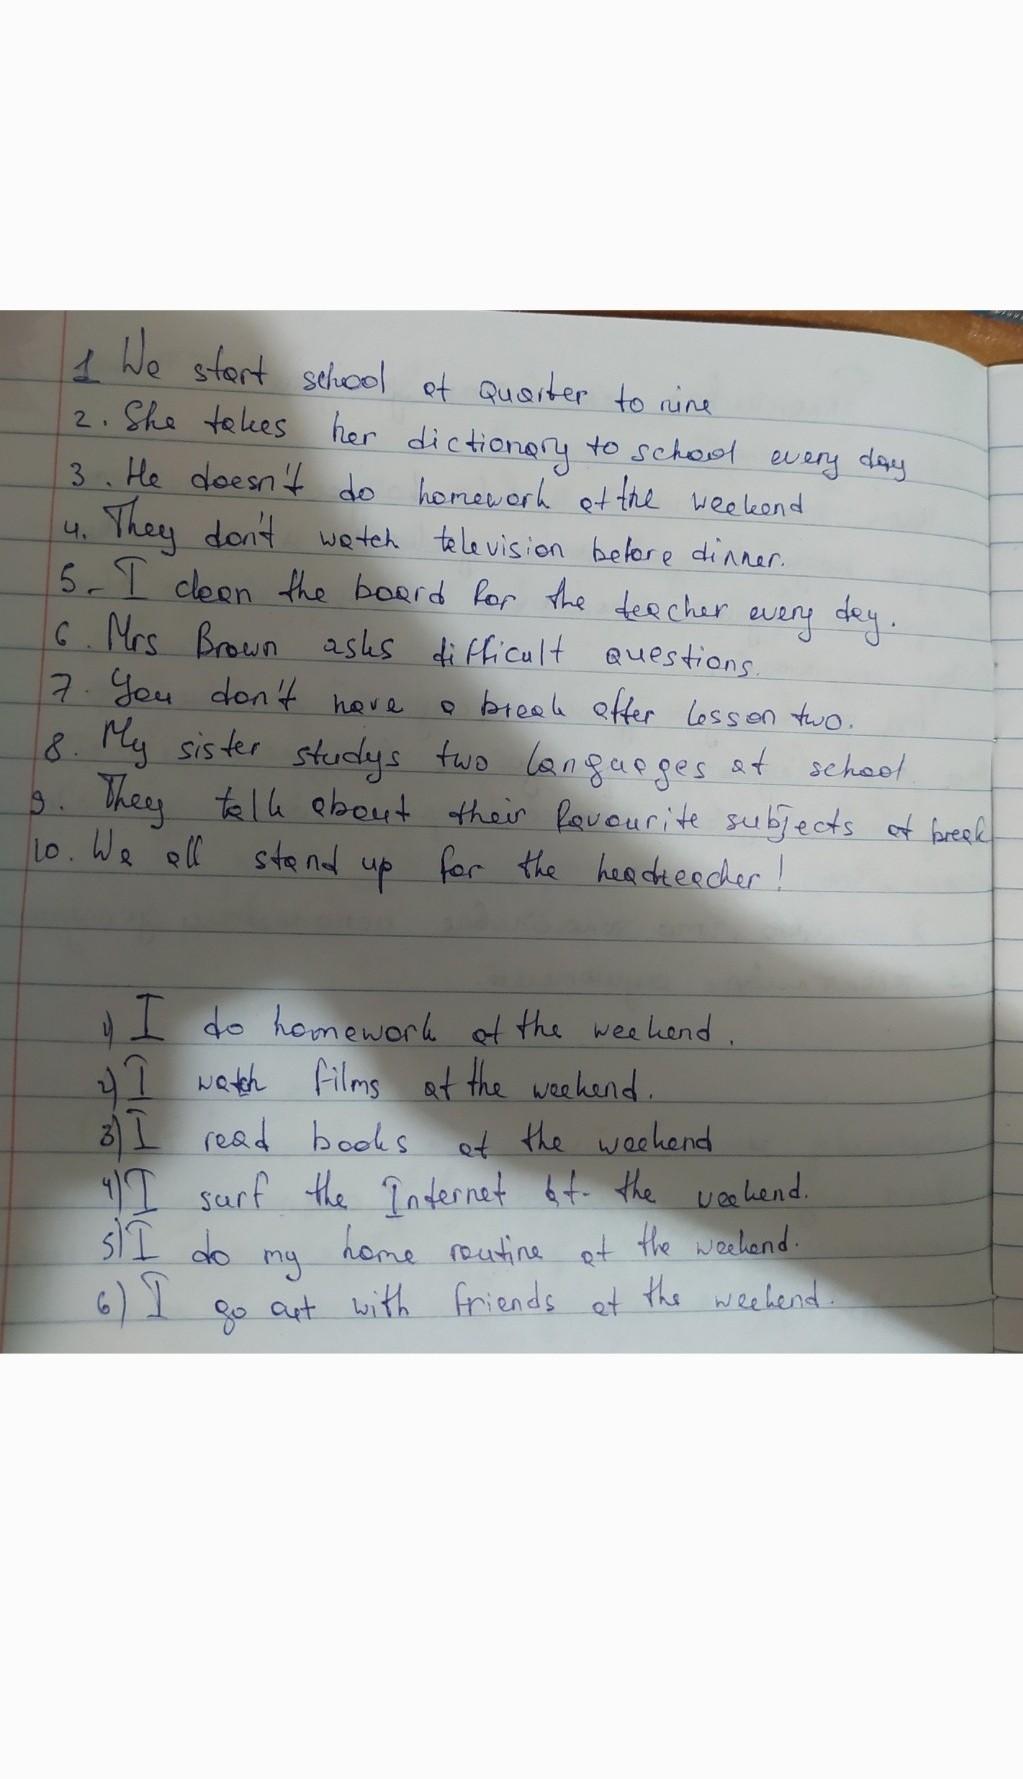 1 We start school at quarter to nine
2. She takes her dictionary to school every day
3. He doesn't do homework at the weekend
4. They don't watch television before dinner.
5. I clean the board for the teacher every day.
6. Mrs Brown asks difficult questions.
7. You don't have a break after lesson two.
8. My sister studys two languages at school
9. They talk about their favourite subjects at break
10. We all stand up for the headteacher!
1) I do homework at the weekend.
2) I watch films at the weekend.
3) I read books at the weekend
4) I surf the Internet at the weekend.
5) I do my home routine at the weekend.
6) I go out with friends at the weekend.